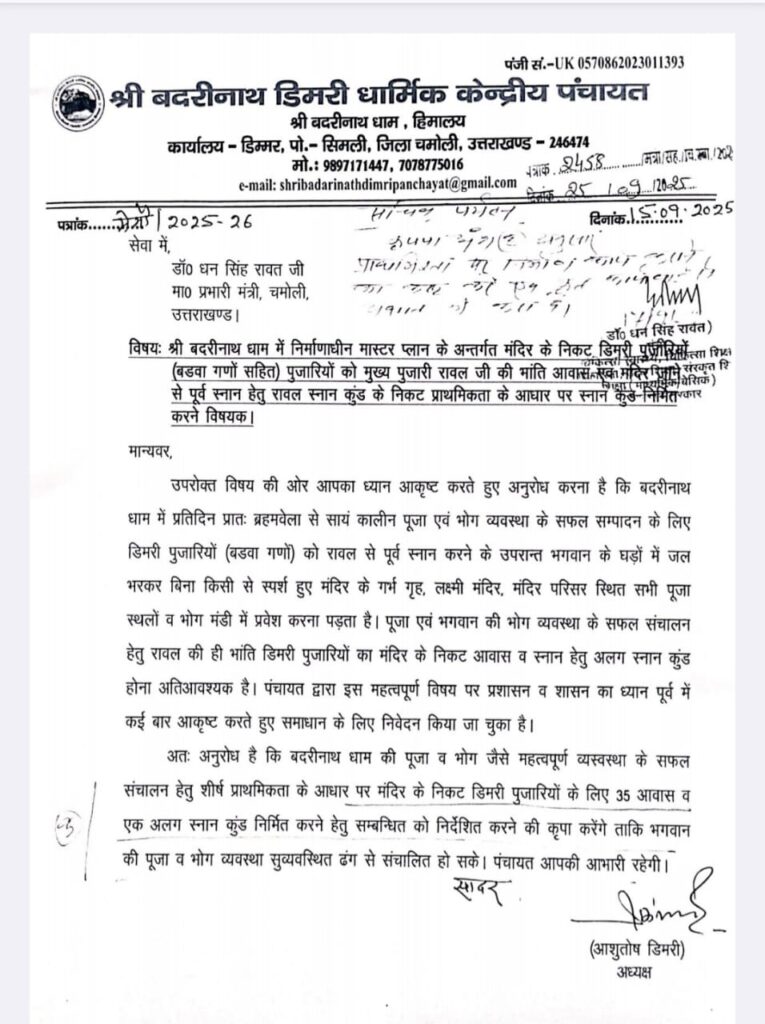 पंजी सं.-UK 0570862023011393
श्री बदरीनाथ डिमरी धार्मिक केन्द्रीय पंचायत
श्री बदरीनाथ धाम , हिमालय
कार्यालय - डिम्मर, पो.- सिमली, जिला चमोली, उत्तराखण्ड - 246474
मो.: 9897171447, 7078775016
e-mail: shribadarinathdimripanchayat@gmail.com
पत्रांक 2458
दिनांक 25/09/2025
पत्रांक....... / 2025-26
दिनांक.15.09.2025
सेवा में,
डॉ0 धन सिंह रावत जी
मा0 प्रभारी मंत्री, चमोली,
उत्तराखण्ड।
डॉ0 धन सिंह रावत)
विषयः श्री बदरीनाथ धाम में निर्माणाधीन मास्टर प्लान के अन्तर्गत मंदिर के निकट डिमरी पुजारियों
(बडवा गणों सहित) पुजारियों को मुख्य पुजारी रावल जी की भांति आवास एवं मंदिर जाने
से पूर्व स्नान हेतु रावल स्नान कुंड के निकट प्राथमिकता के आधार पर स्नान कुंड निर्मित
करने विषयक।
मान्यवर,
उपरोक्त विषय की ओर आपका ध्यान आकृष्ट करते हुए अनुरोध करना है कि बदरीनाथ
धाम में प्रतिदिन प्रातः ब्रहमवेला से सायं कालीन पूजा एवं भोग व्यवस्था के सफल सम्पादन के लिए
डिमरी पुजारियों (बडवा गणों) को रावल से पूर्व स्नान करने के उपरान्त भगवान के घड़ों में जल
भरकर बिना किसी से स्पर्श हुए मंदिर के गर्भ गृह, लक्ष्मी मंदिर, मंदिर परिसर स्थित सभी पूजा
स्थलों व भोग मंडी में प्रवेश करना पड़ता है। पूजा एवं भगवान की भोग व्यवस्था के सफल संचालन
हेतु रावल की ही भांति डिमरी पुजारियों का मंदिर के निकट आवास व स्नान हेतु अलग स्नान कुंड
होना अतिआवश्यक है। पंचायत द्वारा इस महत्वपूर्ण विषय पर प्रशासन व शासन का ध्यान पूर्व में
कई बार आकृष्ट करते हुए समाधान के लिए निवेदन किया जा चुका है।
अतः अनुरोध है कि बदरीनाथ धाम की पूजा व भोग जैसे महत्वपूर्ण व्यस्वस्था के सफल
संचालन हेतु शीर्ष प्राथमिकता के आधार पर मंदिर के निकट डिमरी पुजारियों के लिए 35 आवास व
एक अलग स्नान कुंड निर्मित करने हेतु सम्बन्धित को निर्देशित करने की कृपा करेंगे ताकि भगवान
की पूजा व भोग व्यवस्था सुव्यवस्थित ढंग से संचालित हो सके। पंचायत आपकी आभारी रहेगी।
सादर
(आशुतोष डिमरी)
अध्यक्ष